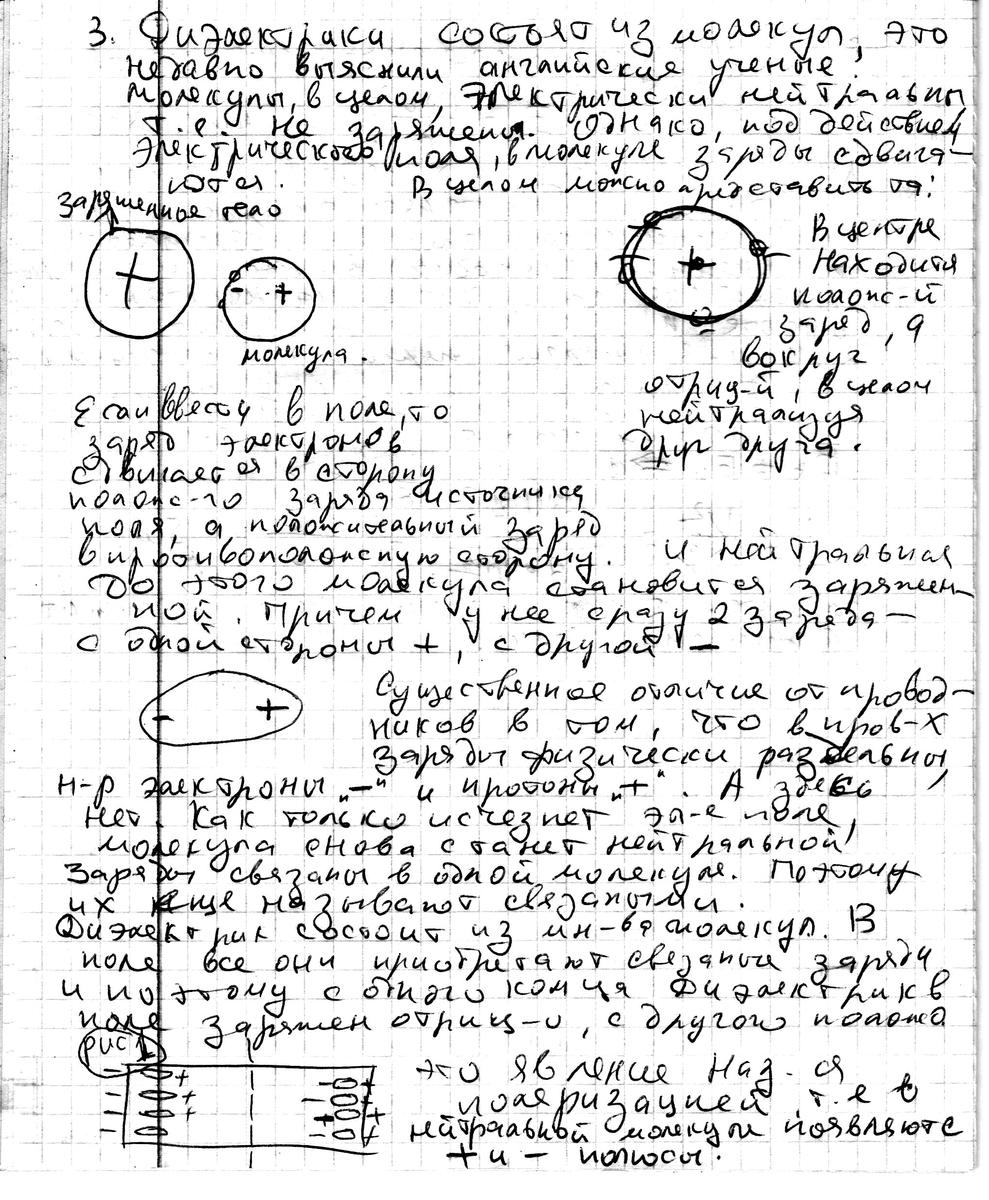 3. Диэлектрики состоят из молекул, это
недавно выяснили английские ученые.
Молекулы, в целом, электрически нейтральны
т.е. не заряжены. Однако, под действием
электрического поля, в молекуле заряды сдвига-
ются. В целом можно представить та:
заряженное тело
+
- +
молекула.
+
В центре
находится
полож-й
заряд, а
вокруг
отриц-й, в целом
нейтрализуя
друг друга.
Если ввести в поле, то
заряд электронов
сдвигается в сторону
полож-го заряда источника
поля, а положительный заряд
в противоположную сторону. И нейтральная
до этого молекула становится заряжен-
ной. Причем у нее сразу 2 заряда -
с одной стороны +, с другой -
- +
Существенное отличие от провод-
ников в том, что в пров-х
заряды физически раздельны,
н-р электроны "-" и протоны "+". А здесь
нет. Как только исчезнет эл-е поле,
молекула снова станет нейтральной
Заряды связаны в одной молекуле. Поэтому
их еще называют связаными.
Диэлектрик состоит из мн-ва молекул. В
поле все они приобретают связаные заряды
и поэтому с одного конца диэлектрик в
поле заряжен отриц-о, с другого полож
рис 1
это явление наз-ся
поляризацией т.е в
нейтральной молекуле появляются
+ и - полюсы.